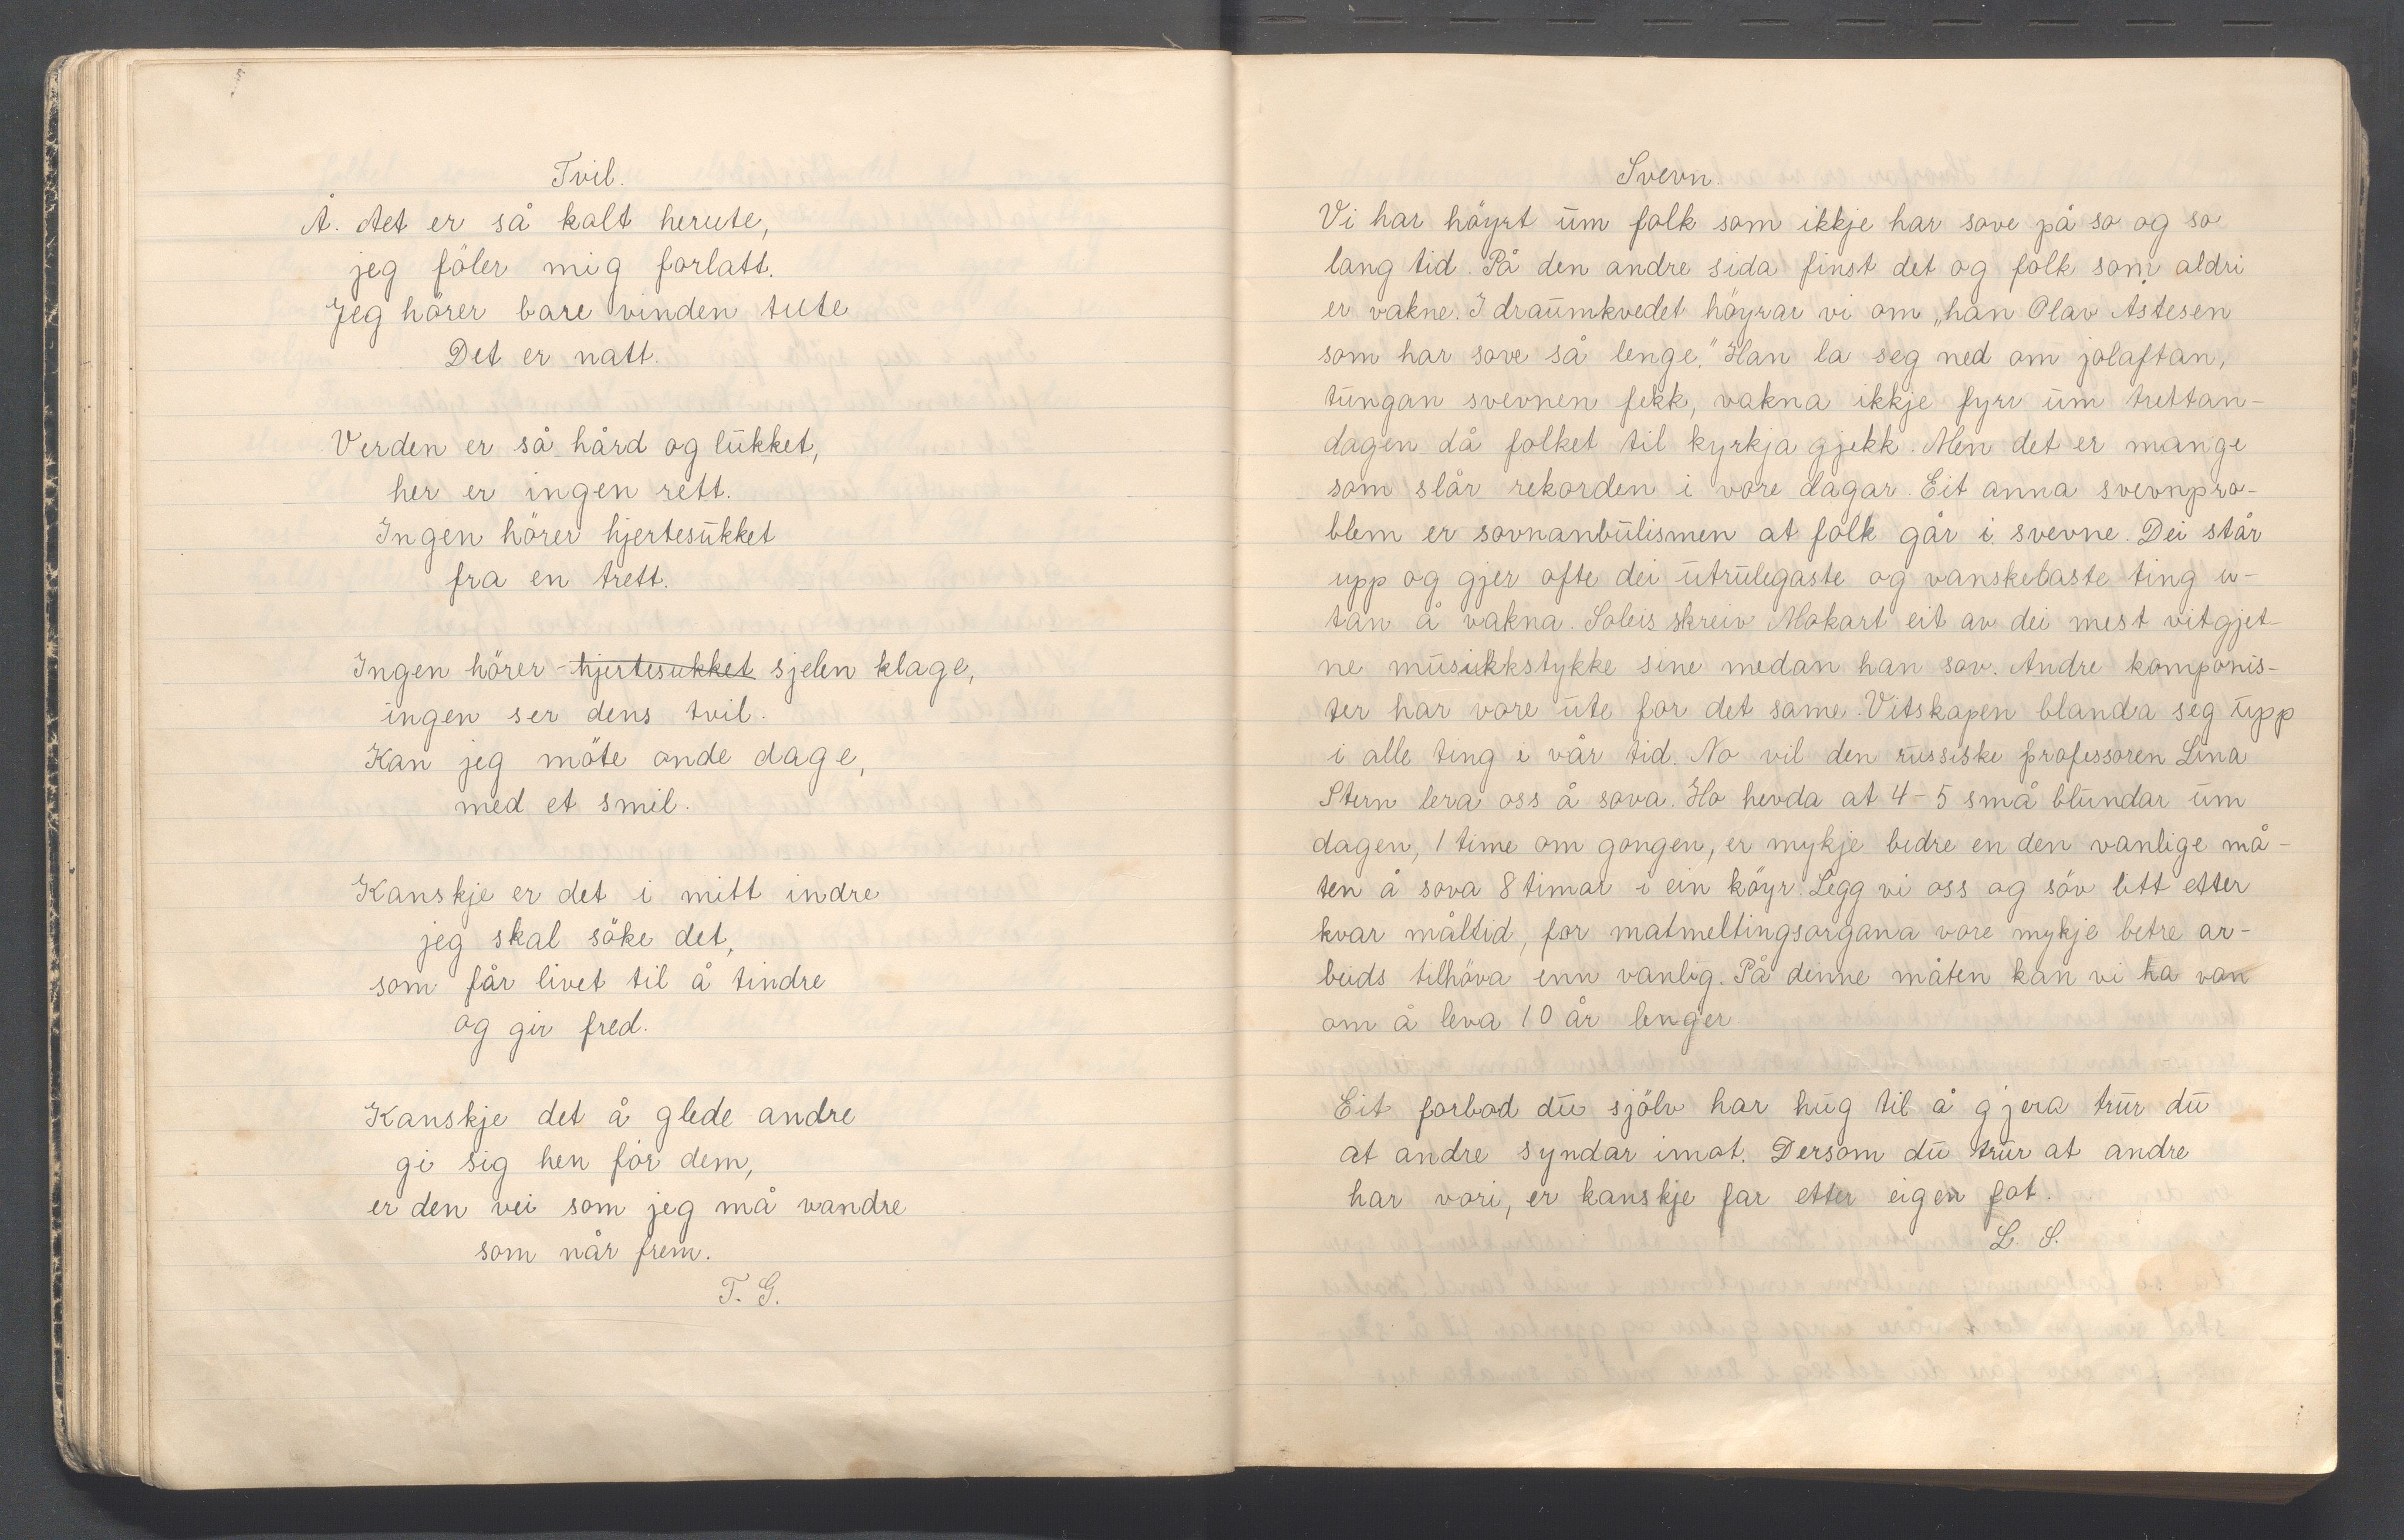 Tvil.
Å. det er så kalt herute,
jeg föler mig forlatt.
Jeg hörer bare vinden tute
Det er natt.
Verden er så hård og lukket,
her er ingen rett.
Ingen hörer hjertesukket
fra en trett.
Ingen hörer hjertesukket sjelen klage,
ingen ser dens tvil.
Kan jeg möte onde dage,
med et smil.
Kanskje er det i mitt indre
jeg skal söke det,
som får livet til å tindre
og gir fred.
Kanskje det å glede andre
gi sig hen for dem,
er den vei som jeg må vandre
som når frem.
T. G.
Svevn.
Vi har höyrt um folk som ikkje har sove på so og so
lang tid. På den andre sida finst det og folk som aldri
er vakne. I draumkvedet höyrar vi om „han Olav Åstesen
som har sove så lenge." Han la seg ned om jolaftan,
tungan svevnen fekk, vakna ikkje fyrr um trettan-
dagen då folket til kyrkja gjekk. Men det er mange
som slår rekorden i vore dagar. Eit anna svevnpro-
blem er sovnanbulismen at folk går i svevne. Dei står
upp og gjer ofte dei utrulegaste og vanskelaste ting u-
tan å vakna. Soleis skreiv Mokart eit av dei mest vitgjet-
ne musikkstykke sine medan han sov. Andre komponis-
ter har vore ute for det same. Vitskapen blanda seg upp
i alle ting i vår tid. No vil den russiske professoren Lina
Stern lera oss å sova. Ho hevda at 4-5 små blundar um
dagen, 1 time om gongen, er mykje bedre en den vanlige må-
ten å sova 8 timar i ein köyr. Legg vi oss og söv litt etter
kvar måltid, for matmeltingsorgana vore mykje betre ar-
beids tilhöva enn vanlig. På dinne måten kan vi ha von
om å leva 10 år lenger
Eit forbod du sjölv har hug til å gjera trur du
at andre syndar imot. Dersom du trur at andre
har vori, er kanskje far etter eigen fot.
L. S.